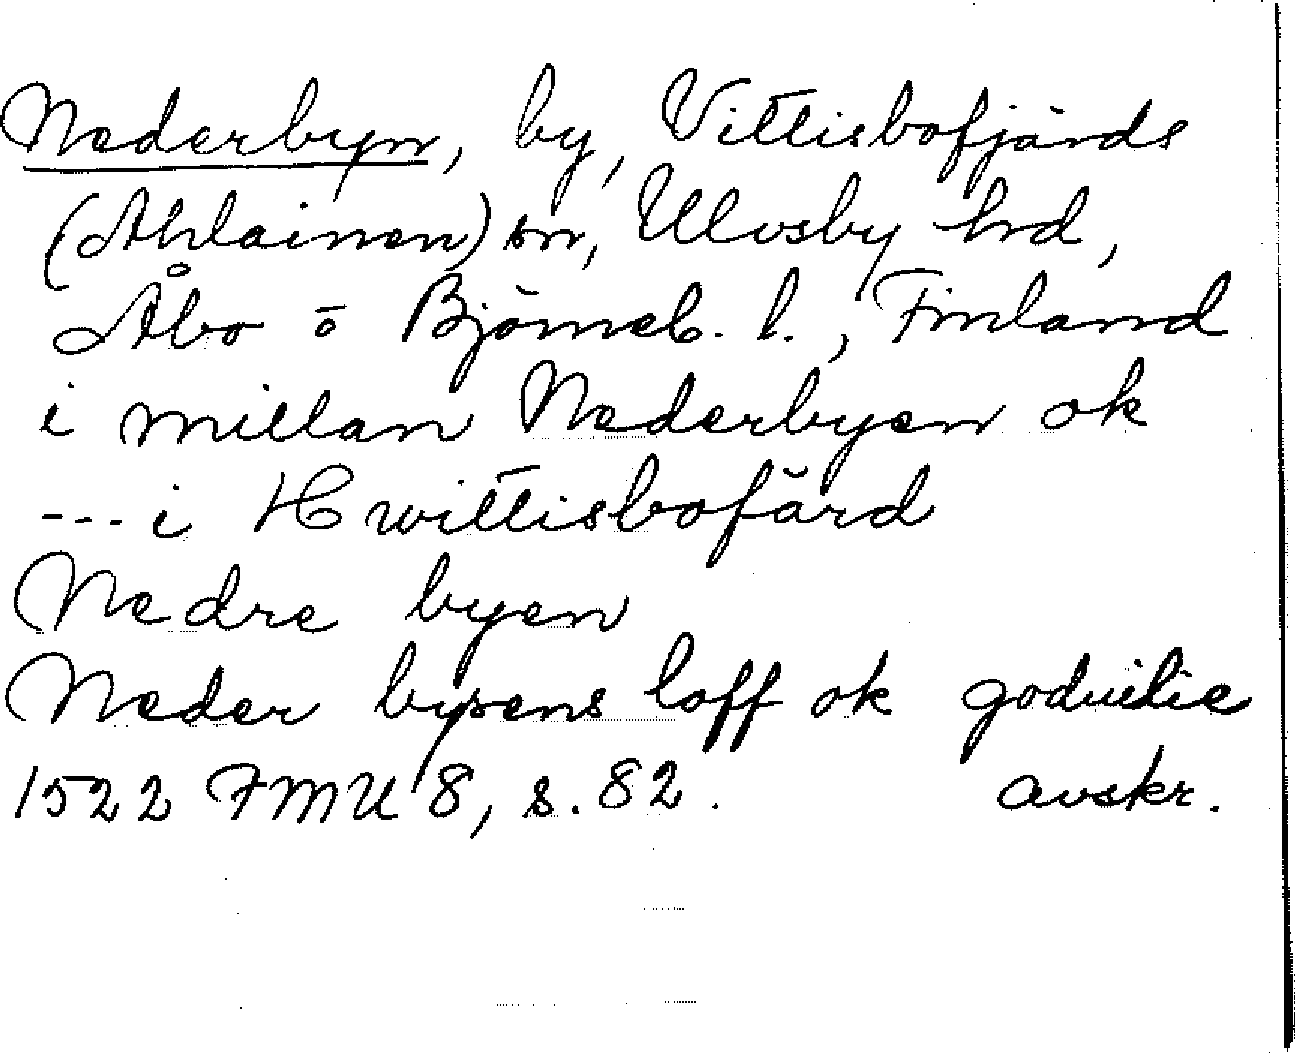 Nederbyn, by, Vittisbofjärds
(Ahlainen) sn, Ulvsby hrd,
Åbo o Björneb. l., Finland
i millan Nederbyen ok
--- i Hwittisbofärd
Nedre byen
Neder byens loff ok godvilie
1522 FMU 8, s. 82. avskr.